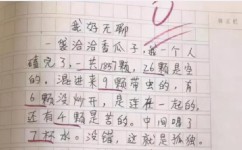 我好无聊
一袋洽洽香瓜子,我一个人
嗑完了,一共1857颗,26颗是空
的,混进来9颗带虫的,有
6颗没炒开,是连在一起的,
还有4颗是苦的。中间喝了
7杯水。没错,这就是孤独。